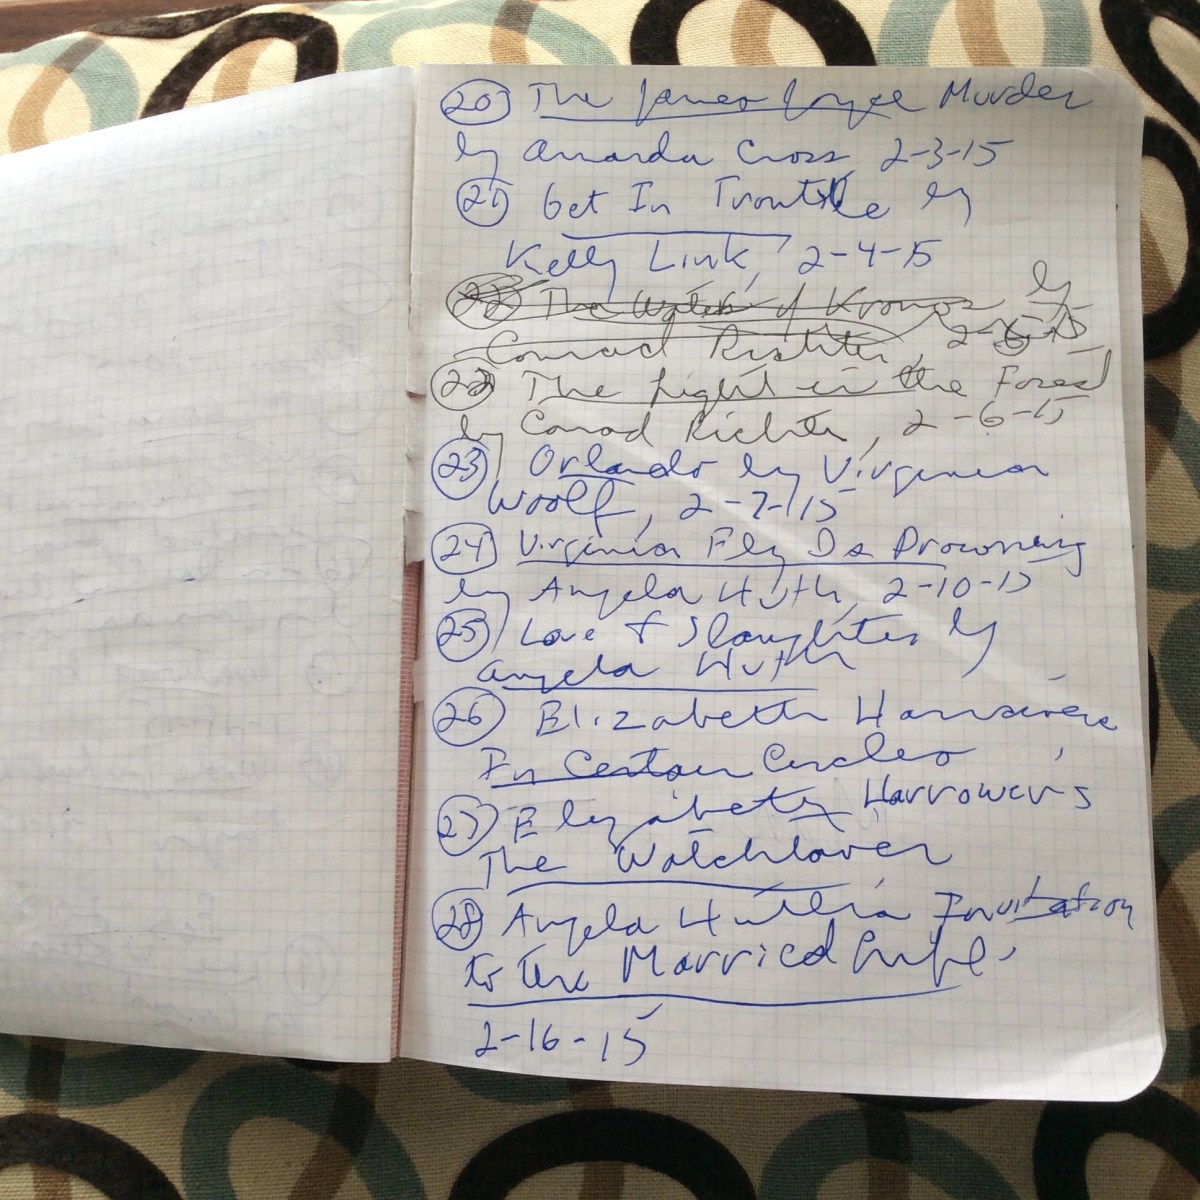 20) The James Joyce Murder
by Amanda Cross 2-3-15
21) Get In Trouble by
Kelly Link, 2-4-15
22) The Waters of Kronos by
Conrad Richter, 2-6-15
22) The Light in the Forest
by Conrad Richter, 2-6-15
23) Orlando by Virginia
Woolf, 2-7-15
24) Virginia Fly Is Drowning
by Angela Huth, 2-10-15
25) Love & Slaughter by
Angela Huth
26) Elizabeth
In Certain Circles
27) Elizabeth Harrower's
The Watchtower
28) Angela Huth's Invitation
to the Married Life,
2-16-15